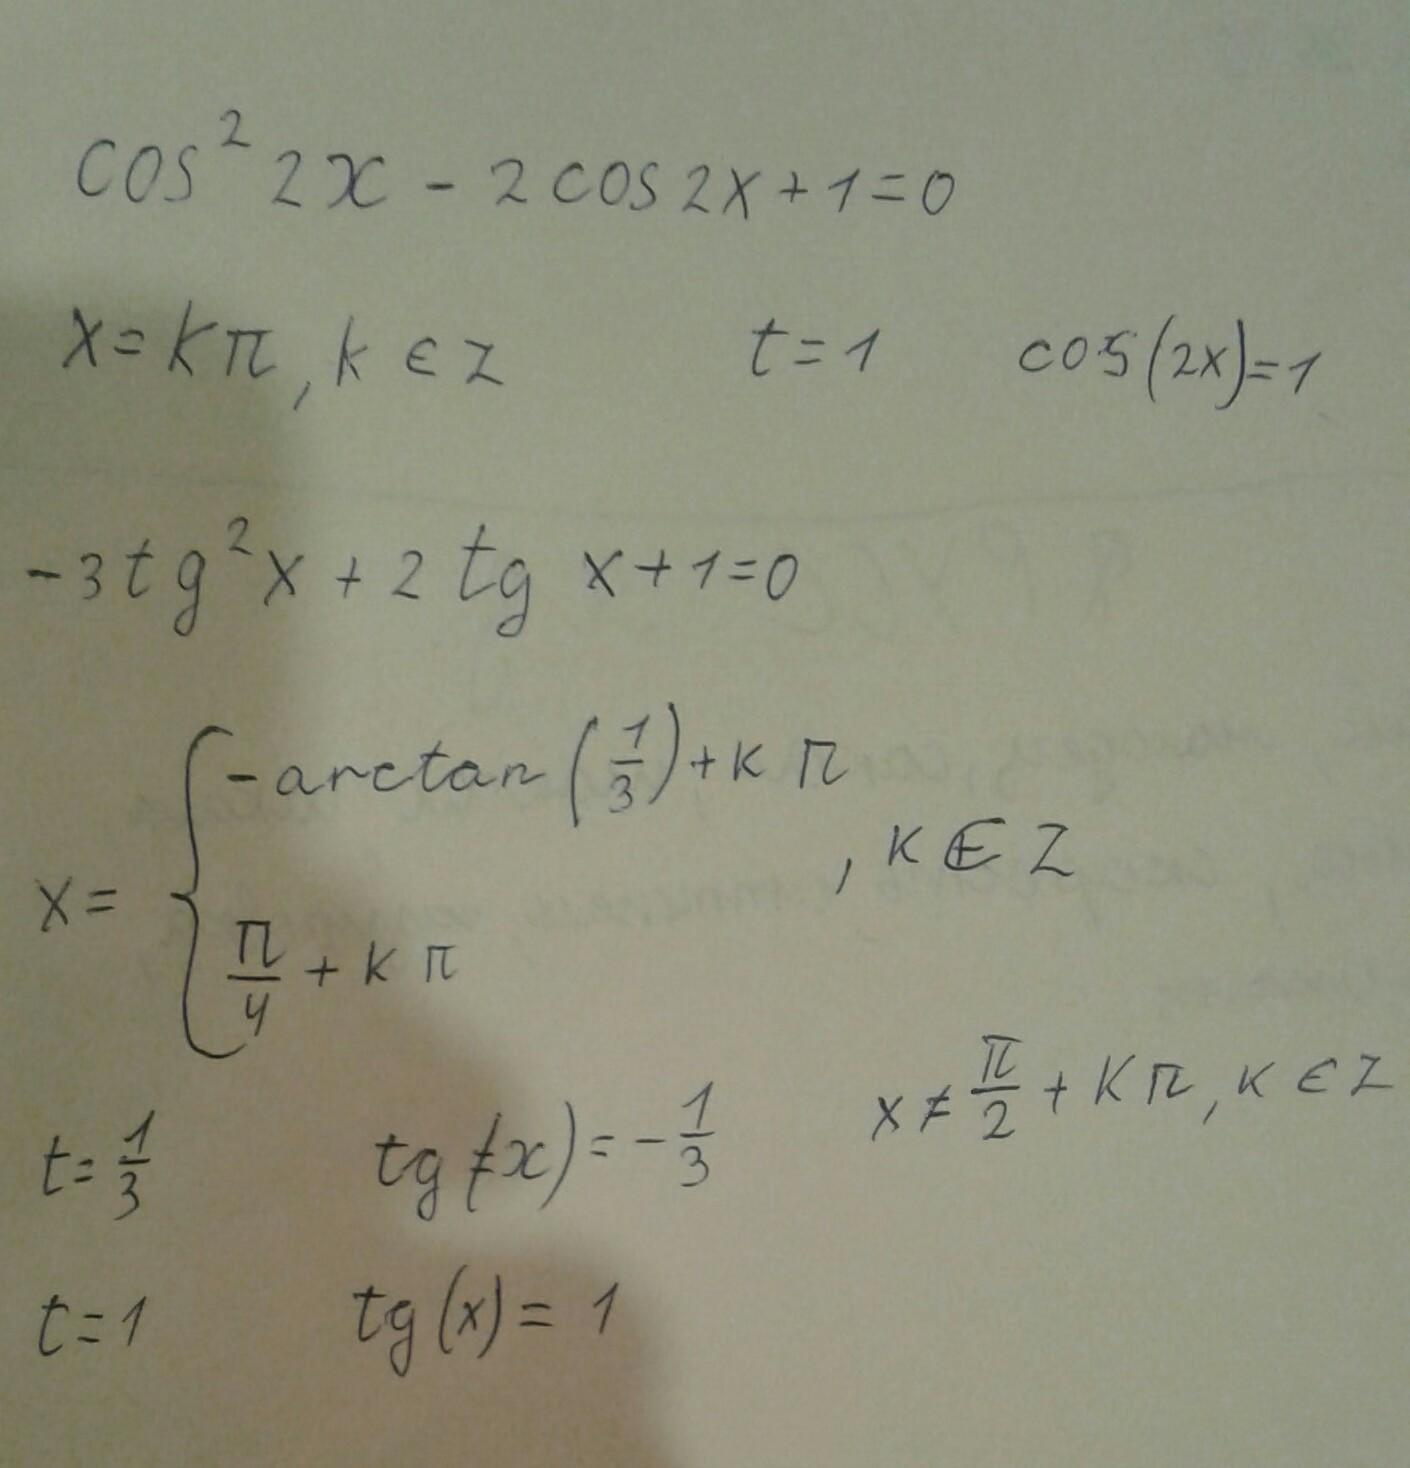 cos² 2x - 2 cos 2x + 1 = 0
x = kπ, k ∈ Z t = 1 cos(2x) = 1
-3 tg² x + 2 tg x + 1 = 0
x = { -arctan(1/3) + k π
π/4 + k π
, k ∈ Z
x ≠ π/2 + kπ, k ∈ Z
t = 1/3 tg(x) = -1/3
t = 1 tg(x) = 1